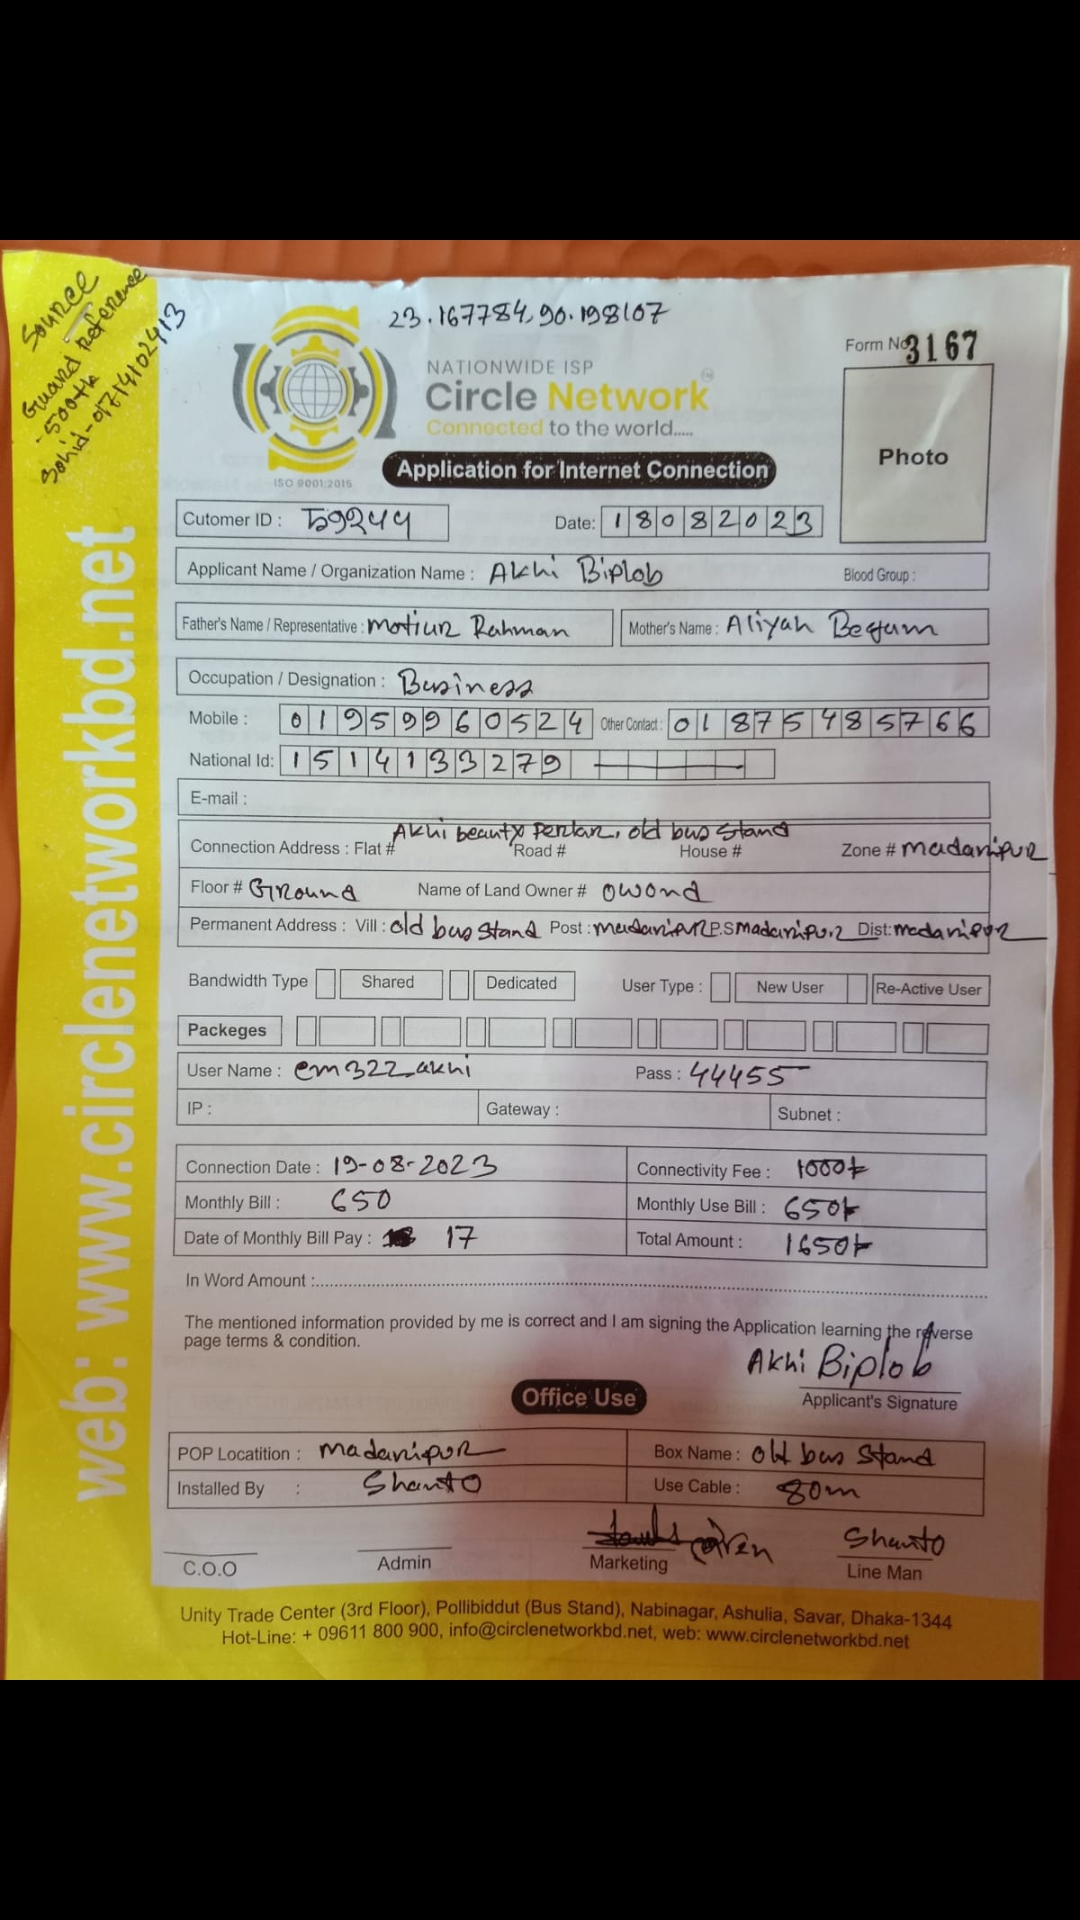 Source
Guard reference
-500tk
Sohid-01714102413
23.167784,90.198107
NATIONWIDE ISP
Form No 3167
Circle Network
Connected to the world.....
Photo
Application for Internet Connection
ISO 9001:2015
Cutomer ID :
Date: 18082023
Applicant Name / Organization Name : Akhi Biplob Blood Group :
Father's Name / Representative : Motiur Rahman Mother's Name : Aliyah Begum
Occupation / Designation : Business
Mobile : 01959960524 Other Contact : 01875485766
National Id: 1514133279
E-mail :
Akhi beauty Perlar, old bus Stand
Connection Address : Flat # Road # House # Zone # madaripur
Floor # Ground Name of Land Owner # owond
Permanent Address : Vill : old bus stand Post : madaripur P.S madaripur Dist: madaripur
Bandwidth Type Shared Dedicated User Type : New User Re-Active User
Packeges
User Name : em322_akhi Pass : 44455
IP : Gateway : Subnet :
Connection Date : 19-08-2023 Connectivity Fee : 1000/-
Monthly Bill : 650 Monthly Use Bill : 650/-
Date of Monthly Bill Pay : 17 Total Amount : 1650/-
In Word Amount :
The mentioned information provided by me is correct and I am signing the Application learning the reverse
page terms & condition.
Akhi Biplob
Applicant's Signature
Office Use
POP Locatition : madaripur Box Name : old bus Stand
Installed By : Shanto Use Cable : 80m
Shanto
C.O.O Admin Marketing Line Man
Unity Trade Center (3rd Floor), Pollibiddut (Bus Stand), Nabinagar, Ashulia, Savar, Dhaka-1344
Hot-Line: + 09611 800 900, info@circlenetworkbd.net, web: www.circlenetworkbd.net
web: www.circlenetworkbd.net